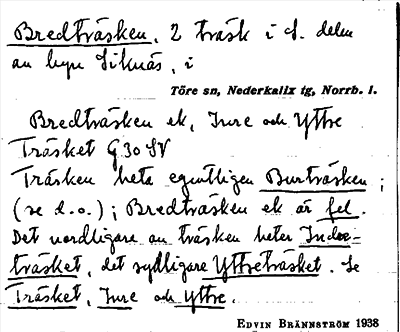 Bredträsken, 2 träsk i S. delen
av byn Siknäs, i
Töre sn, Nederkalix tg, Norrb. l.
Bredträsken ek, Inre och Yttre
Träsket G 30 SV
Träsken heta egentligen Burträsken
(se d.o.); Bredträsken ek är fel.
Det nordligare av träsken heter Indre-
träsket, det sydligare Yttreträsket. Se
Träsket, Inre och Yttre.
EDVIN BRÄNNSTRÖM 1938